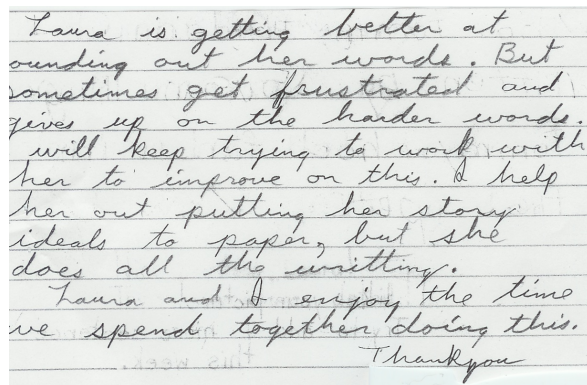 Laura is getting better at
ounding out her words. But
sometimes get frustrated and
gives up on the harder words.
will keep trying to work with
her to improve on this. I help
her out putting her story
ideals to paper, but she
does all the writting.
Laura and I enjoy the time
we spend together doing this.
Thankyou
this week.